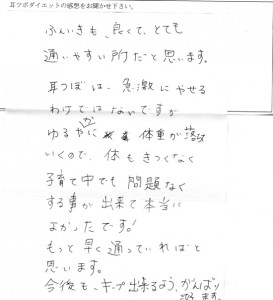 耳ツボダイエットの感想をお聞かせ下さい。
ふんいきも、良くて、とても
通いやすい所だと思います。
耳つぼは、急激にやせる
わけではないですが
ゆるやかに 体重が落ちて
いくので、体もきつくなく
子育て中でも問題なく
する事が出来て本当に
よかったです!
もっと早く通っていればと
思います。
今後も、キープ出来るよう、がんばり
ます。